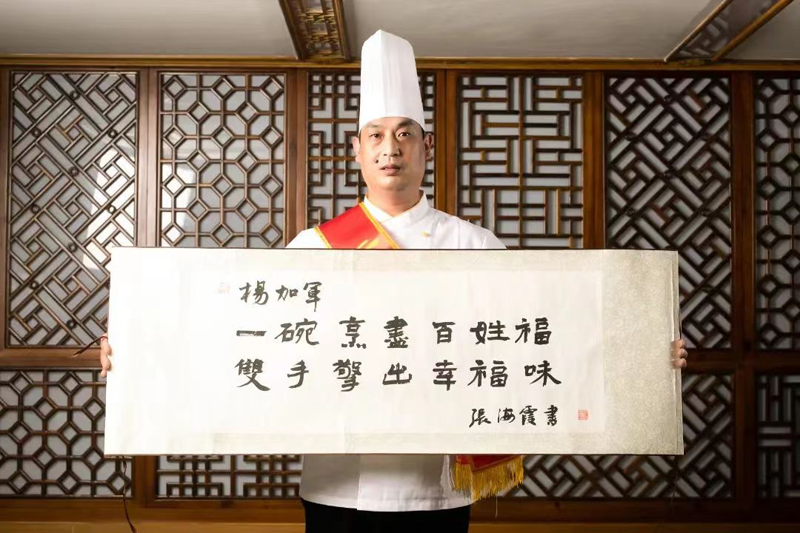 楊加軍
一碗烹盡百姓福
雙手擎出幸福味
張海霞書